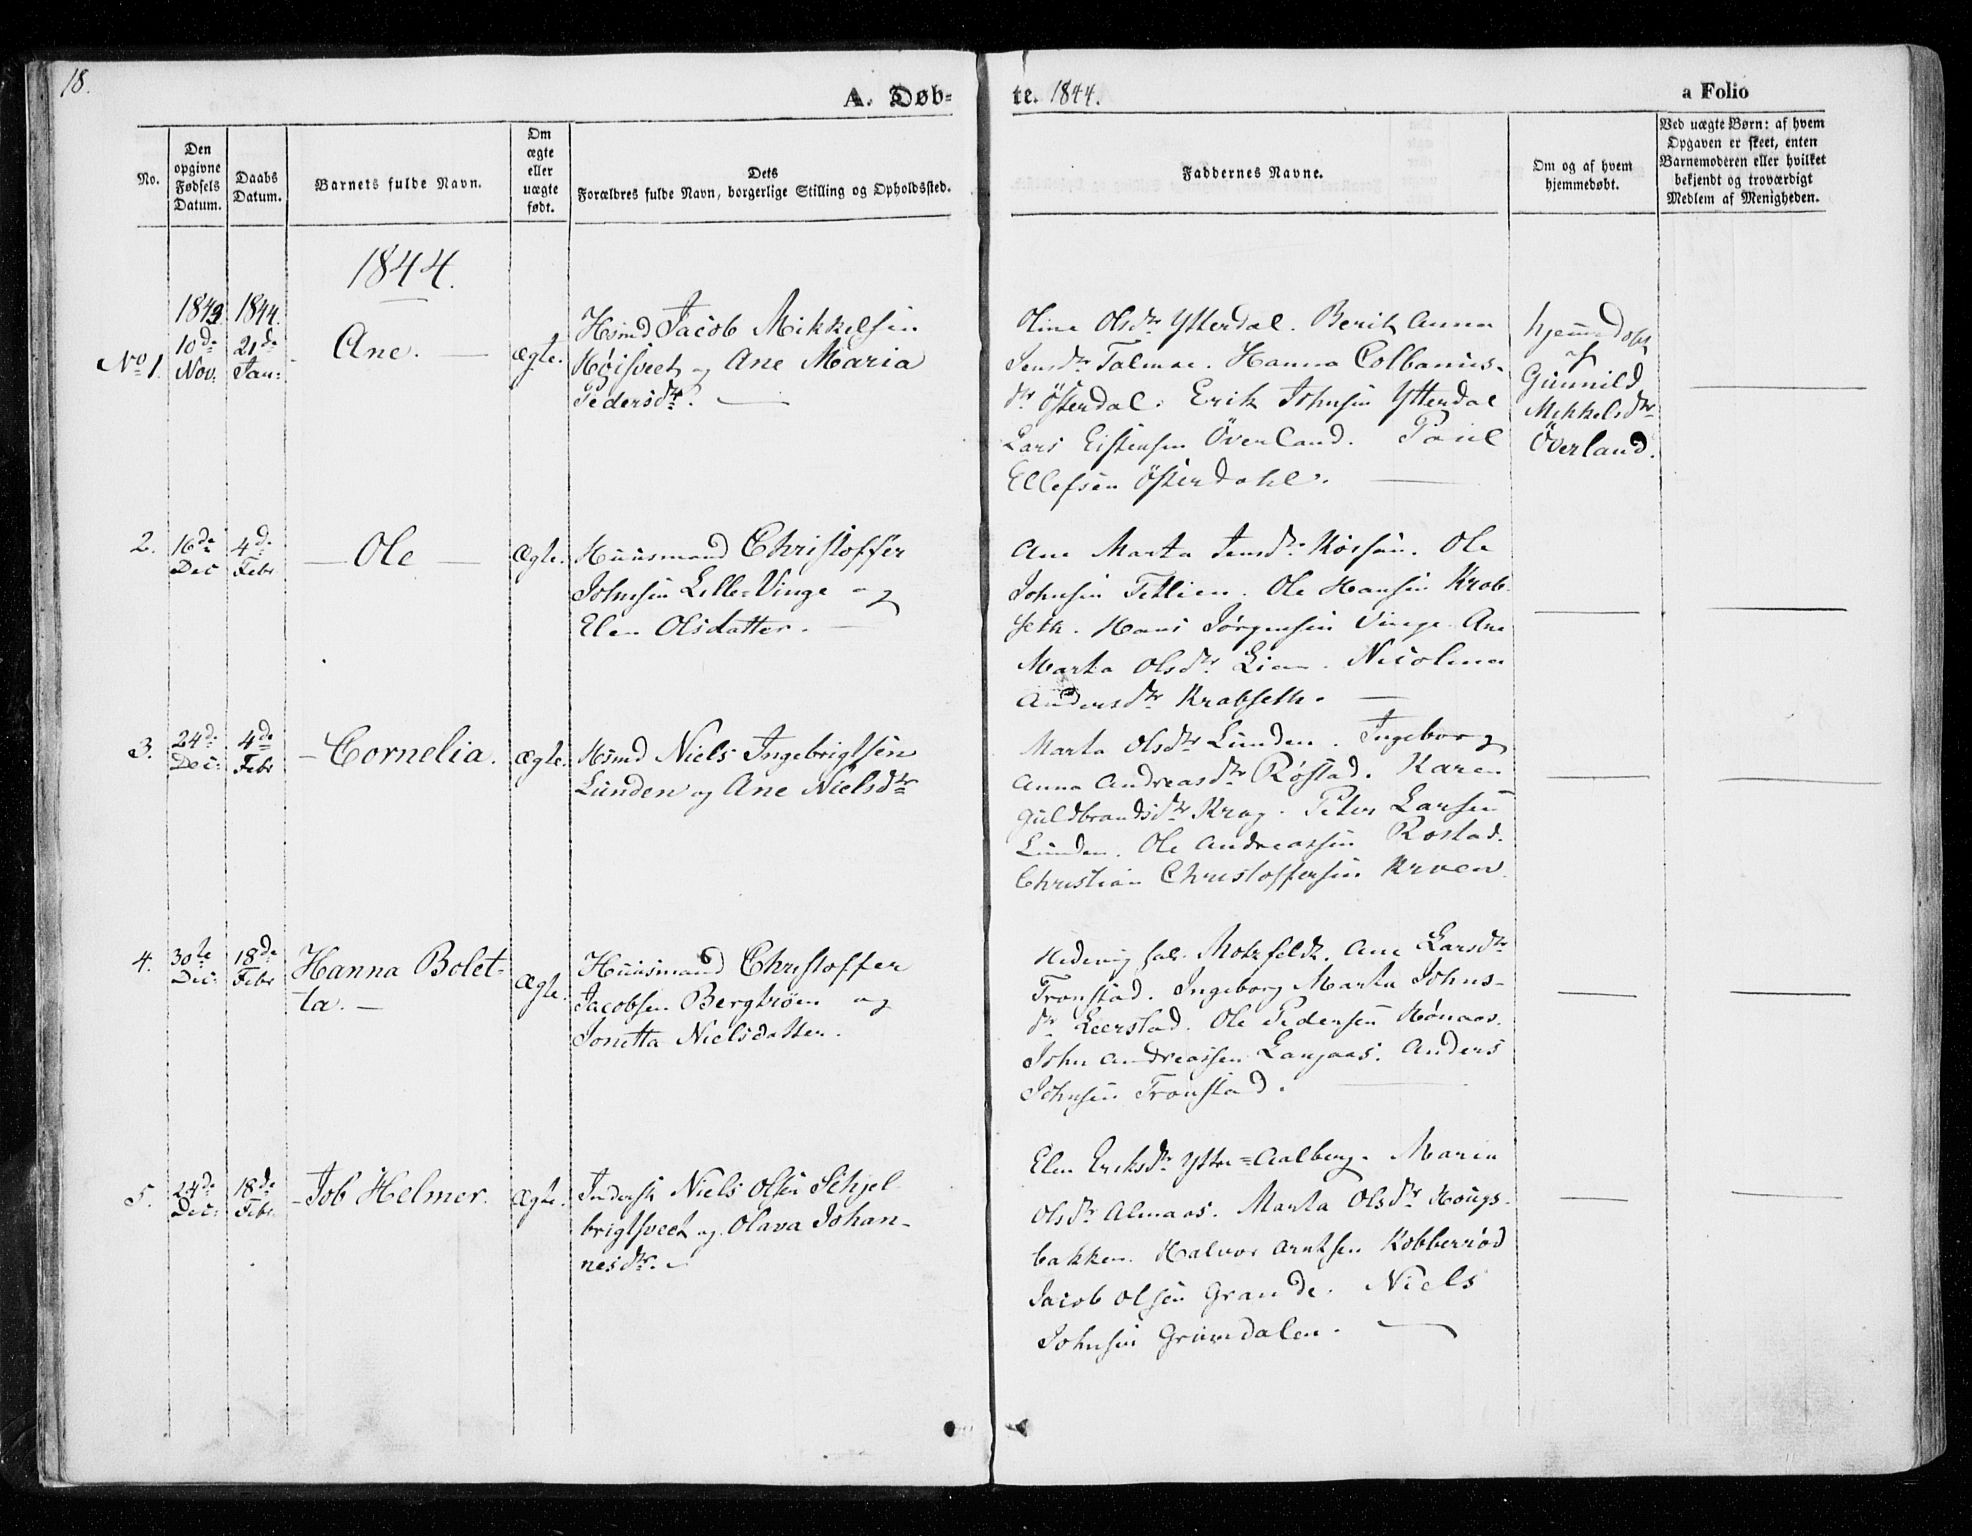 18.
A. Døb-
te. 1844.
a Folio
No.
Den
opgivne
Fødsels
Datum.
Daabs
Datum.
Barnets fulde Navn.
Om
ægte
eller
uægte
født.
Dets
Forældres fulde Navn, borgerlige Stilling og Opholdssted.
Faddernes Navne.
Om og af hvem
hjemmedøbt.
Ved uægte Børn: af hvem
Opgaven er skeet, enten
Barnemoderen eller hvilket
bekjendt og troværdigt
Medlem af Menigheden.
1844.
1843 1844.
No 1.
10de
Nov:
21de
Jan:
Ane.
ægte.
Hsmd Jacob Mikkelsen
Høisveet og Ane Maria
Pedersdtr.
Oline Olsdtr Ytterdal. Berit Anna
Jensdtr Talmae. Hanna Colbanus-
dtr Østerdal. Erik Johnsen Ytterdal
Lars Eistensen Överland. Paul
Ellefsen Østerdahl.
hjemmedøpt
af
Gunnild
Mikkelsdtr
Överland.
2.
16de
Dec
4de
Febr
Ole
Ægte.
Huusmand Christoffer
Johnsen Lille-Vinge og
Elen Olsdatter.
Ane Marta Jensdtr. Ole
Johnsen Tetlien. Ole Hansen Krob-
seth. Hans Jørgensen Vinge. Ane
Marta Olsdtr Lien. Nicolina
Andersdtr Krabseth.
3.
24de
Dec:
4de
Febr
Cornelia.
Ægte.
Hsmd Niels Ingebrigtsen
Lunden og Ane Nielsdtr
Marta Olsdtr Lunden. Ingeborg
Anna Andreasdtr Røstad. Karen
Guldbrandsdtr Krog. Peter Larsen
Lunden. Ole Andreassen Rostad.
Christian Christoffersen
4.
30te
Dec:
18de
Febr
Hanna Bolet-
ta.
Ægte.
Huusmand Christoffer
Jacobsen Bergtrøen og
Jonetta Nielsdatter.
Hedevig Motzfeldt. Ane Larsdtr
Tronstad. Ingeborg Marta Johns-
dtr Leerstad. Ole Pedersen Hönaas.
John Andreassen Langaas. Anders
Johnsen Tronstad.
5.
24de
Dec:
18de
Febr.
Job Helmer.
Ægte.
Inderst Niels Olsen Schjel
brigtsveet og Olava Johan-
nesdtr.
Elen Eriksdtr Ytter=Aalberg. Maria
Olsdtr Almaas. Marta Olsdtr Hougs-
bakken. Halvor Arntsen Kobberrød
Jacob Olsen Grande. Niels
Johnsen Grundalen.